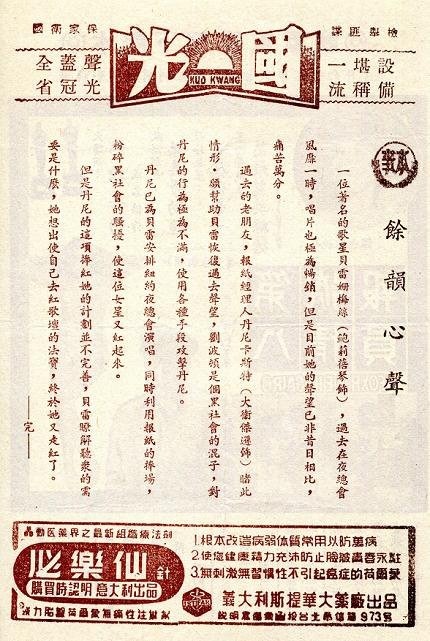 檢舉匪諜
保家衛國
國光
KUO KWANG
設備
堪稱
一流
聲光
蓋冠
全省
本事
餘韻心聲
一位著名的歌星貝雷姍梅絲（鮑莉蓓琴飾），過去在夜總會
風靡一時，唱片也極為暢銷，但是目前她的聲望已非昔日相比，
痛苦萬分。
過去的老朋友，報紙經理人丹尼卡斯特（大衛傑遜飾）睹此
情形，願幫助貝雷恢復過去聲望，劉波頓是個黑社會的混子，對
丹尼的行為極為不滿，使用各種手段攻擊丹尼。
丹尼已為貝雷安排紐約夜總會演唱，同時利用報紙的捧場，
粉碎黑社會的騷擾，使這位女星又紅起來。
但是丹尼的這項捧紅她的計劃並不完善，貝雷瞭解聽衆的需
要是什麼，她想出使自己去紅歌壇的法寶，終於她又走紅了。
——完——
医藥界之最新組織療法剤
必樂仙針
購買時認明意大利出品
1.根本改造病弱体質常用以防萬病
2.使您健康精力充沛防止臉皺青春永駐
3.無刺激無習慣性不引起癌症的荷爾蒙
ISTBAR
義大利斯提華大薬廠出品
973号